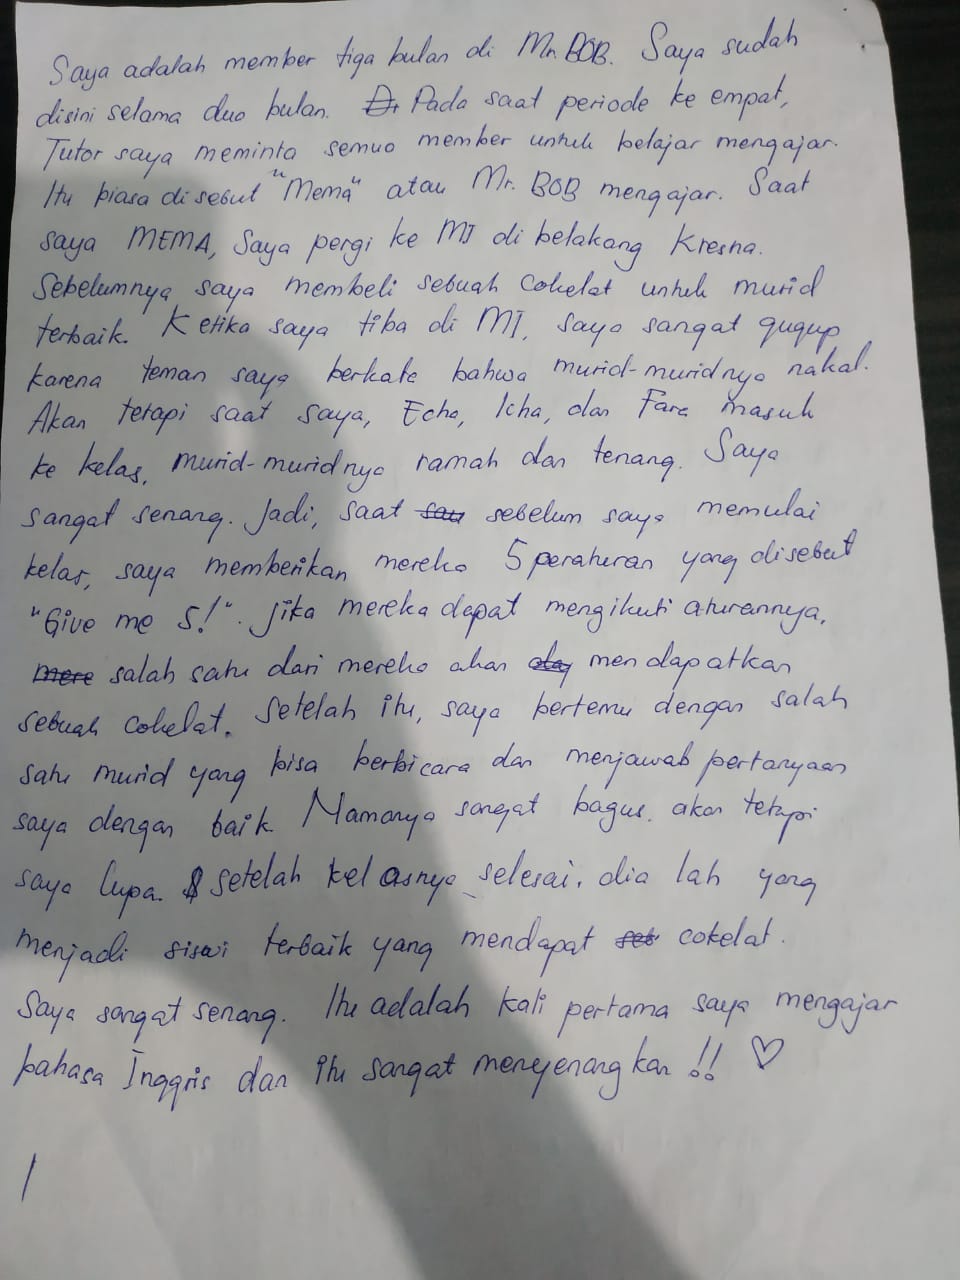 Saya adalah member tiga bulan di Mr. BOB. Saya sudah
disini selama dua bulan. Pada saat periode ke empat,
Tutor saya meminta semua member untuk belajar mengajar.
Itu biasa di sebut "Mema" atau Mr. BOB mengajar. Saat
saya MEMA, Saya pergi ke MI di belakang Kresna.
Sebelumnya saya membeli sebuah cokelat untuk murid
terbaik. Ketika saya tiba di MI, saya sangat gugup
karena teman saya berkata bahwa murid-muridnya nakal.
Akan tetapi saat saya, Echa, Icha, dan Fara masuk
ke kelas, murid-muridnya ramah dan tenang. Saya
sangat senang. Jadi, saat sebelum saya memulai
kelas, saya memberikan mereka 5 peraturan yang disebut
"Give me 5!". Jika mereka dapat mengikuti aturannya,
salah satu dari mereka akan mendapatkan
sebuah cokelat. Setelah itu, saya bertemu dengan salah
satu murid yang bisa berbicara dan menjawab pertanyaan
saya dengan baik. Namanya sangat bagus. akan tetapi
saya lupa. setelah kelasnya selesai, dia lah yang
menjadi siswi terbaik yang mendapat cokelat.
Saya sangat senang. Itu adalah kali pertama saya mengajar
bahasa Inggris dan itu sangat menyenangkan !! ♡